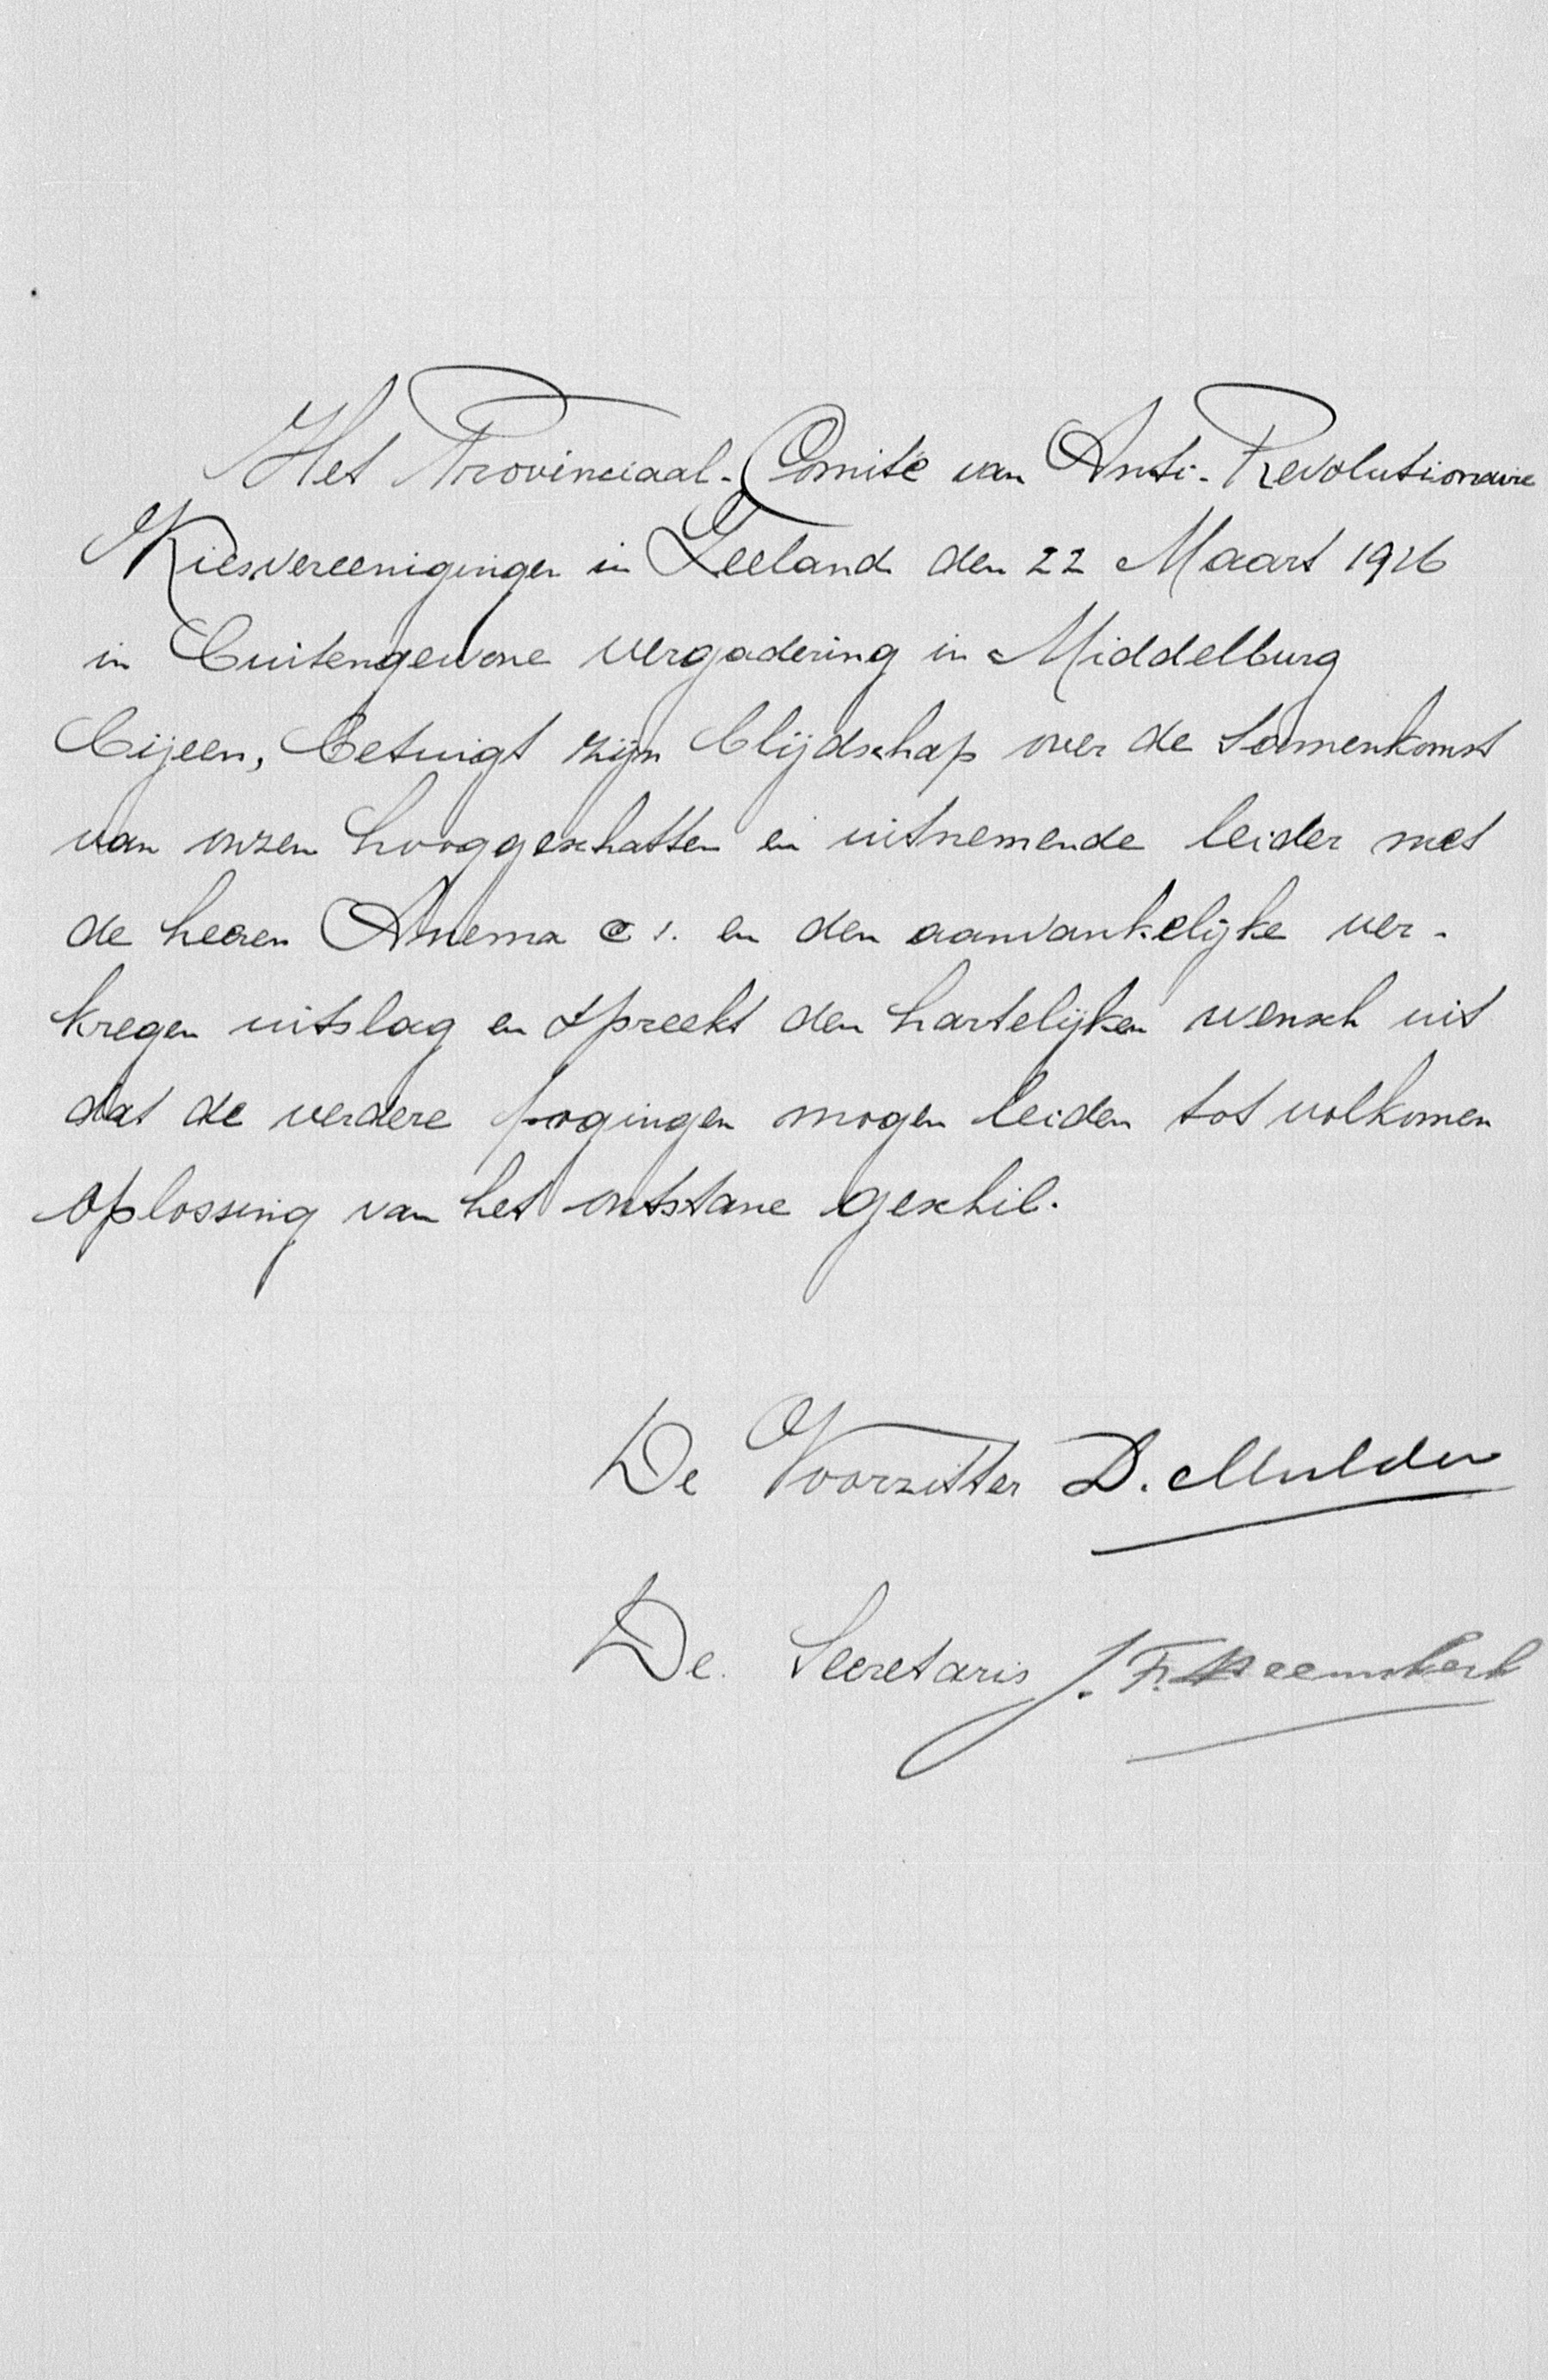 Het Provinciaal-Comité van Anti-Revolutionaire
Kiesvereenigingen in Zeeland den 22 Maart 1916
in buitengewone vergadering in Middelburg
bijeen, betuigt zijn blijdschap over de samenkomst
van onzen hooggeschatten en uitnemende leider met
de heeren Anema c s. en den aanvankelijke ver-
kregen uitslag en spreekt den hartelijken wensch uit
dat de verdere pogingen mogen leiden tot volkomen
oplossing van het ontstane geschil.
De Voorzitter D. Mulder
De Secretaris J. Fr. Heemskerk